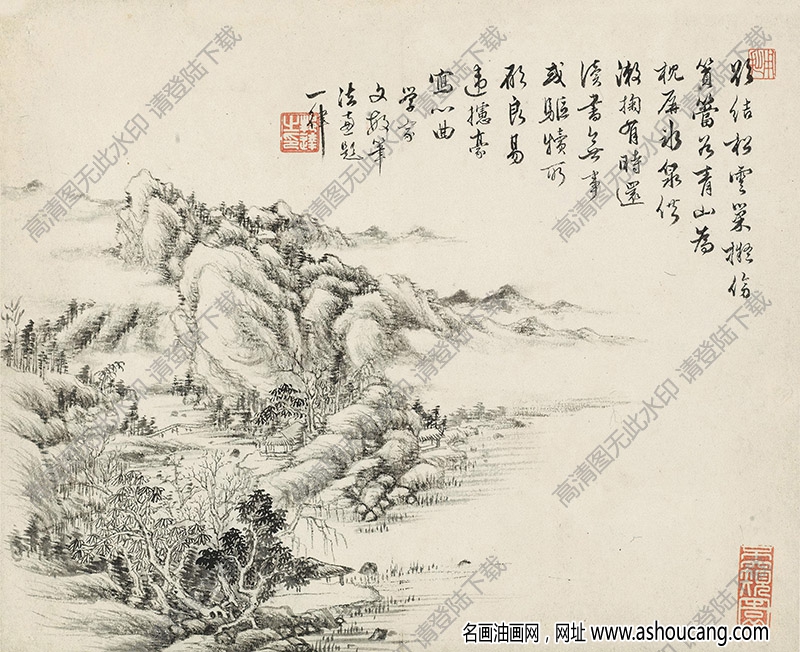 欲結松雲巢擬傍
篔簹谷青山為
枕屏泉供
漱掬有時還
讀書無事
或驅犢所
願良易
違攄豪
寫心曲
学
文敏筆
法並題
一律
高清图无此水印 请登陆下载
高清图无此水印 请登陆下载
高清图无此水印 请登陆下载
高清图无此水印 请登陆下载
高清图无此水印 请登陆下载
高清图无此水印 请登陆下载
名画油画网，网址 www.ashoucang.com